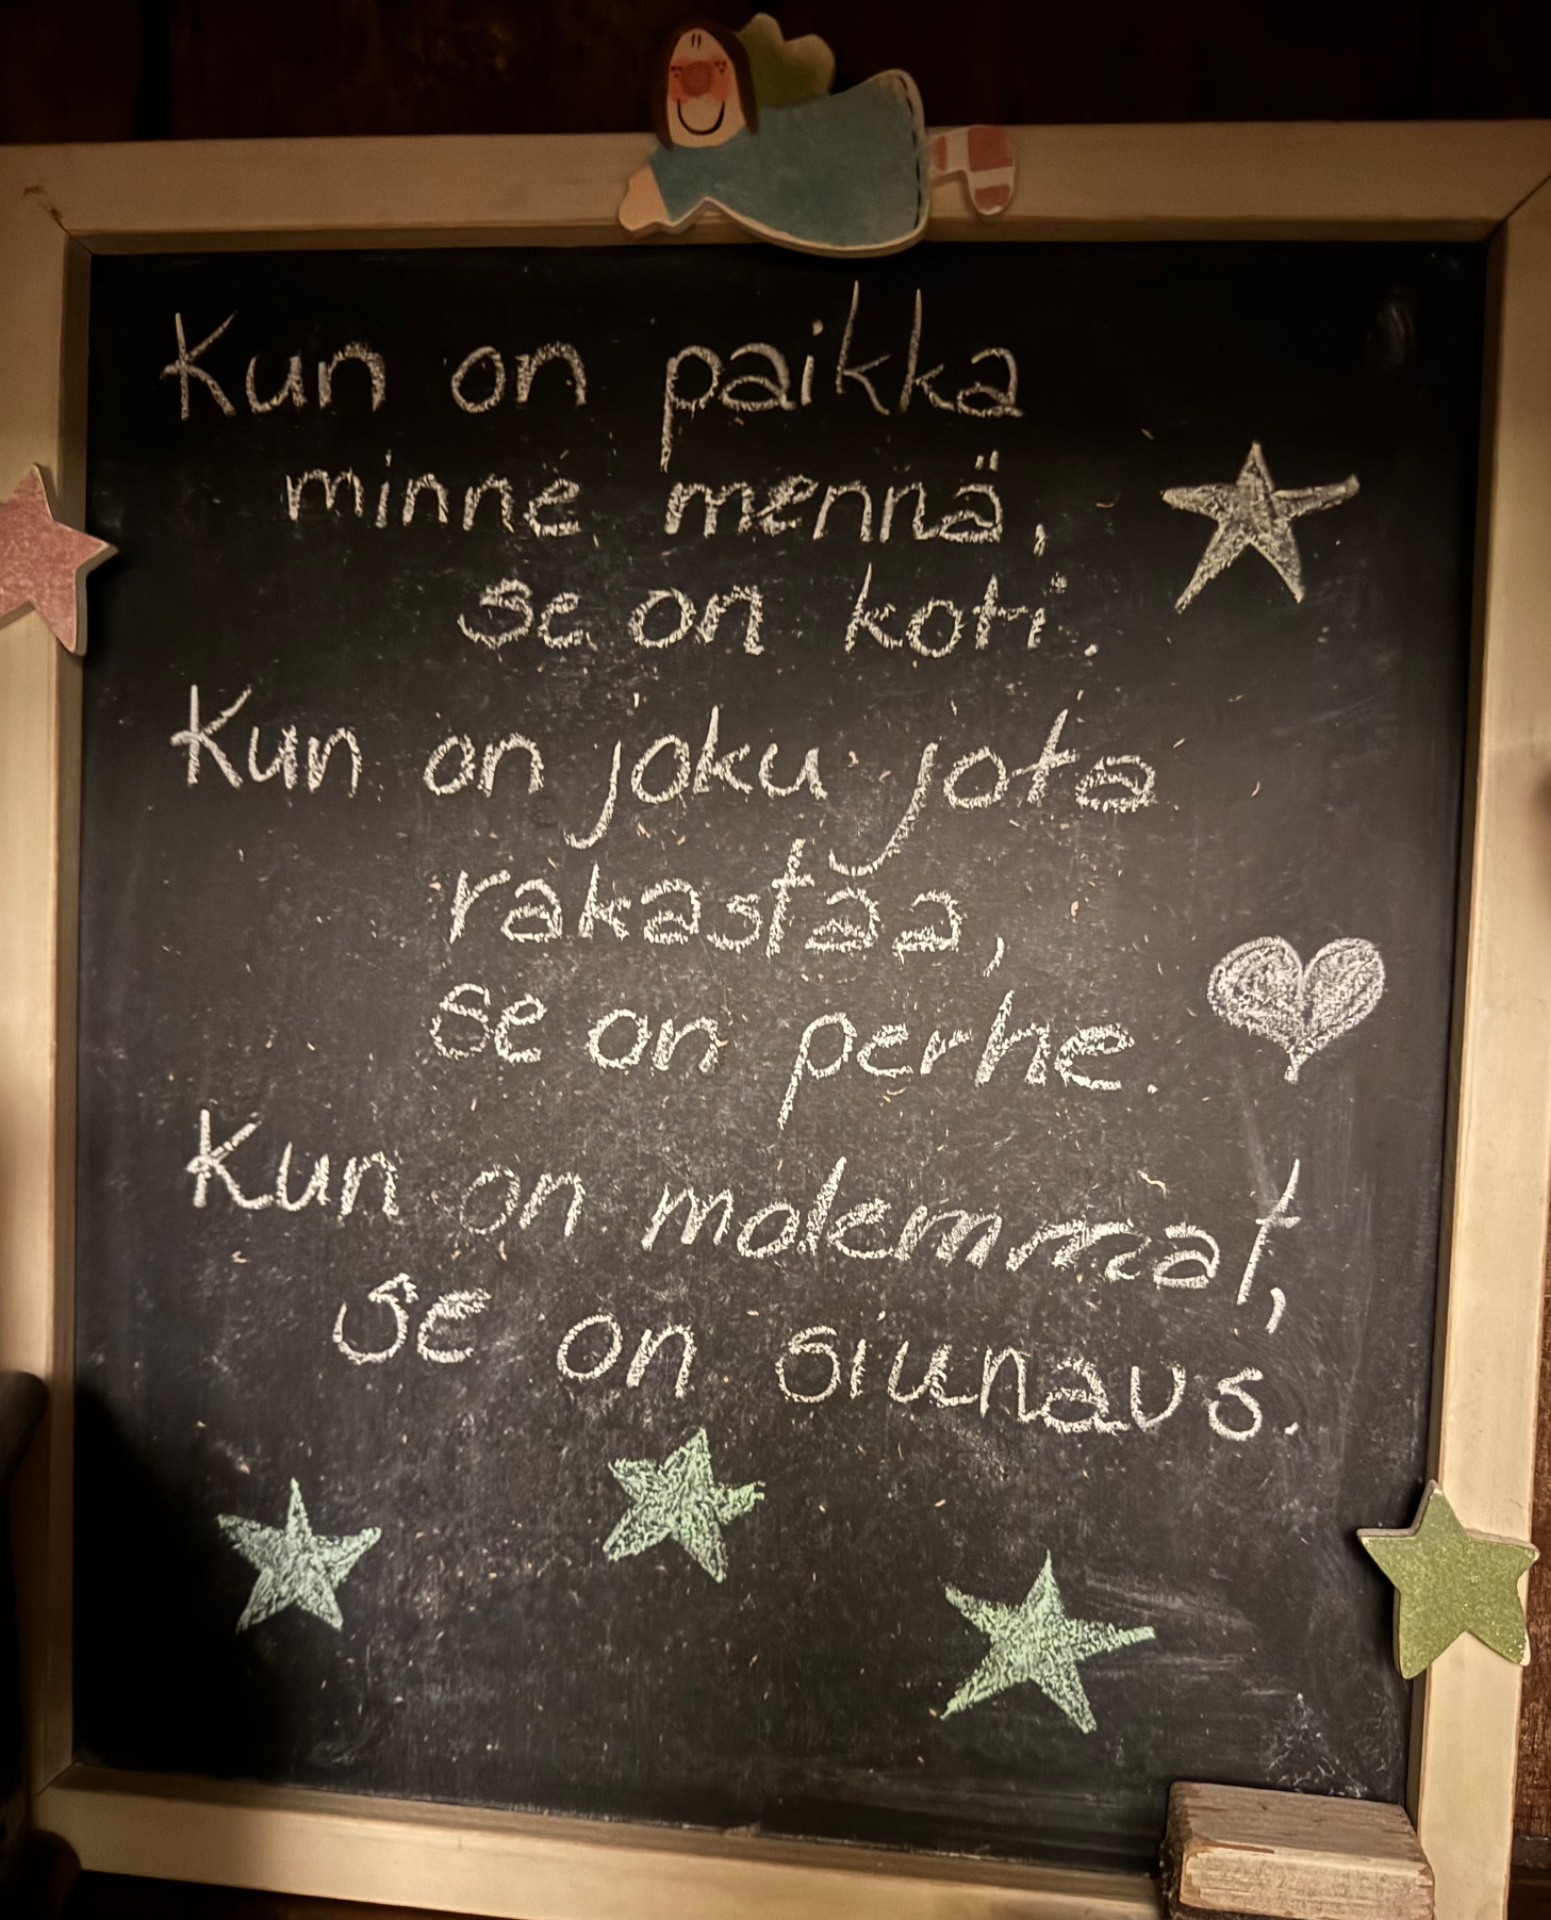 Kun on paikka
minne mennä,
se on koti.
Kun on joku jota
rakastaa,
se on perhe.
Kun on molemmat,
se on siunaus.